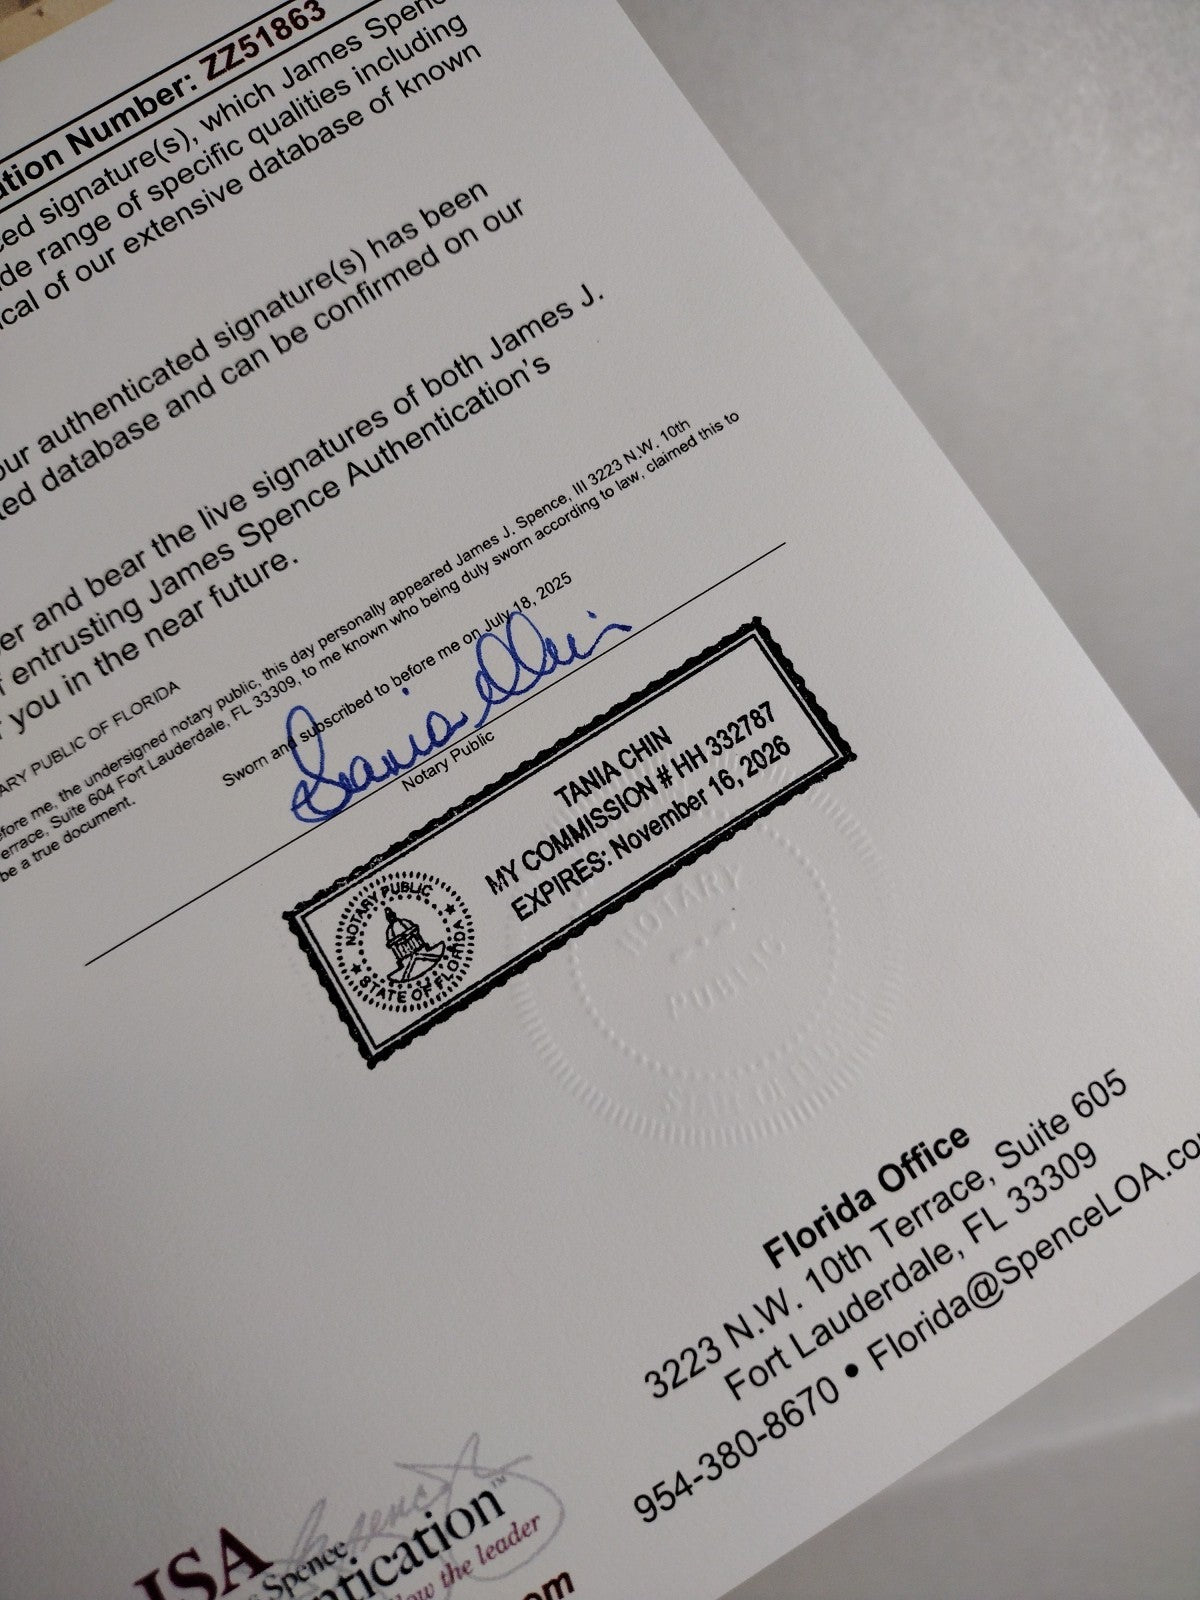 ation Number: ZZ51863
ced signature(s), which James Spence
de range of specific qualities including
ical of our extensive database of known
our authenticated signature(s) has been
ted database and can be confirmed on our
er and bear the live signatures of both James J.
f entrusting James Spence Authentication's
r you in the near future.
ARY PUBLIC OF FLORIDA
efore me, the undersigned notary public, this day personally appeared James J. Spence, III 3223 N.W. 10th
errace, Suite 604 Fort Lauderdale, FL 33309, to me known who being duly sworn according to law, claimed this to
be a true document.
Sworn and subscribed to before me on July 18, 2025
Tania Chin
Notary Public
TANIA CHIN
MY COMMISSION # HH 332787
EXPIRES: November 16, 2026
NOTARY PUBLIC
STATE OF FLORIDA
NOTARY
PUBLIC
Florida Office
3223 N.W. 10th Terrace, Suite 605
Fort Lauderdale, FL 33309
954-380-8670 • Florida@SpenceLOA.co
JSA
Spence
ntication™
ow the leader
om